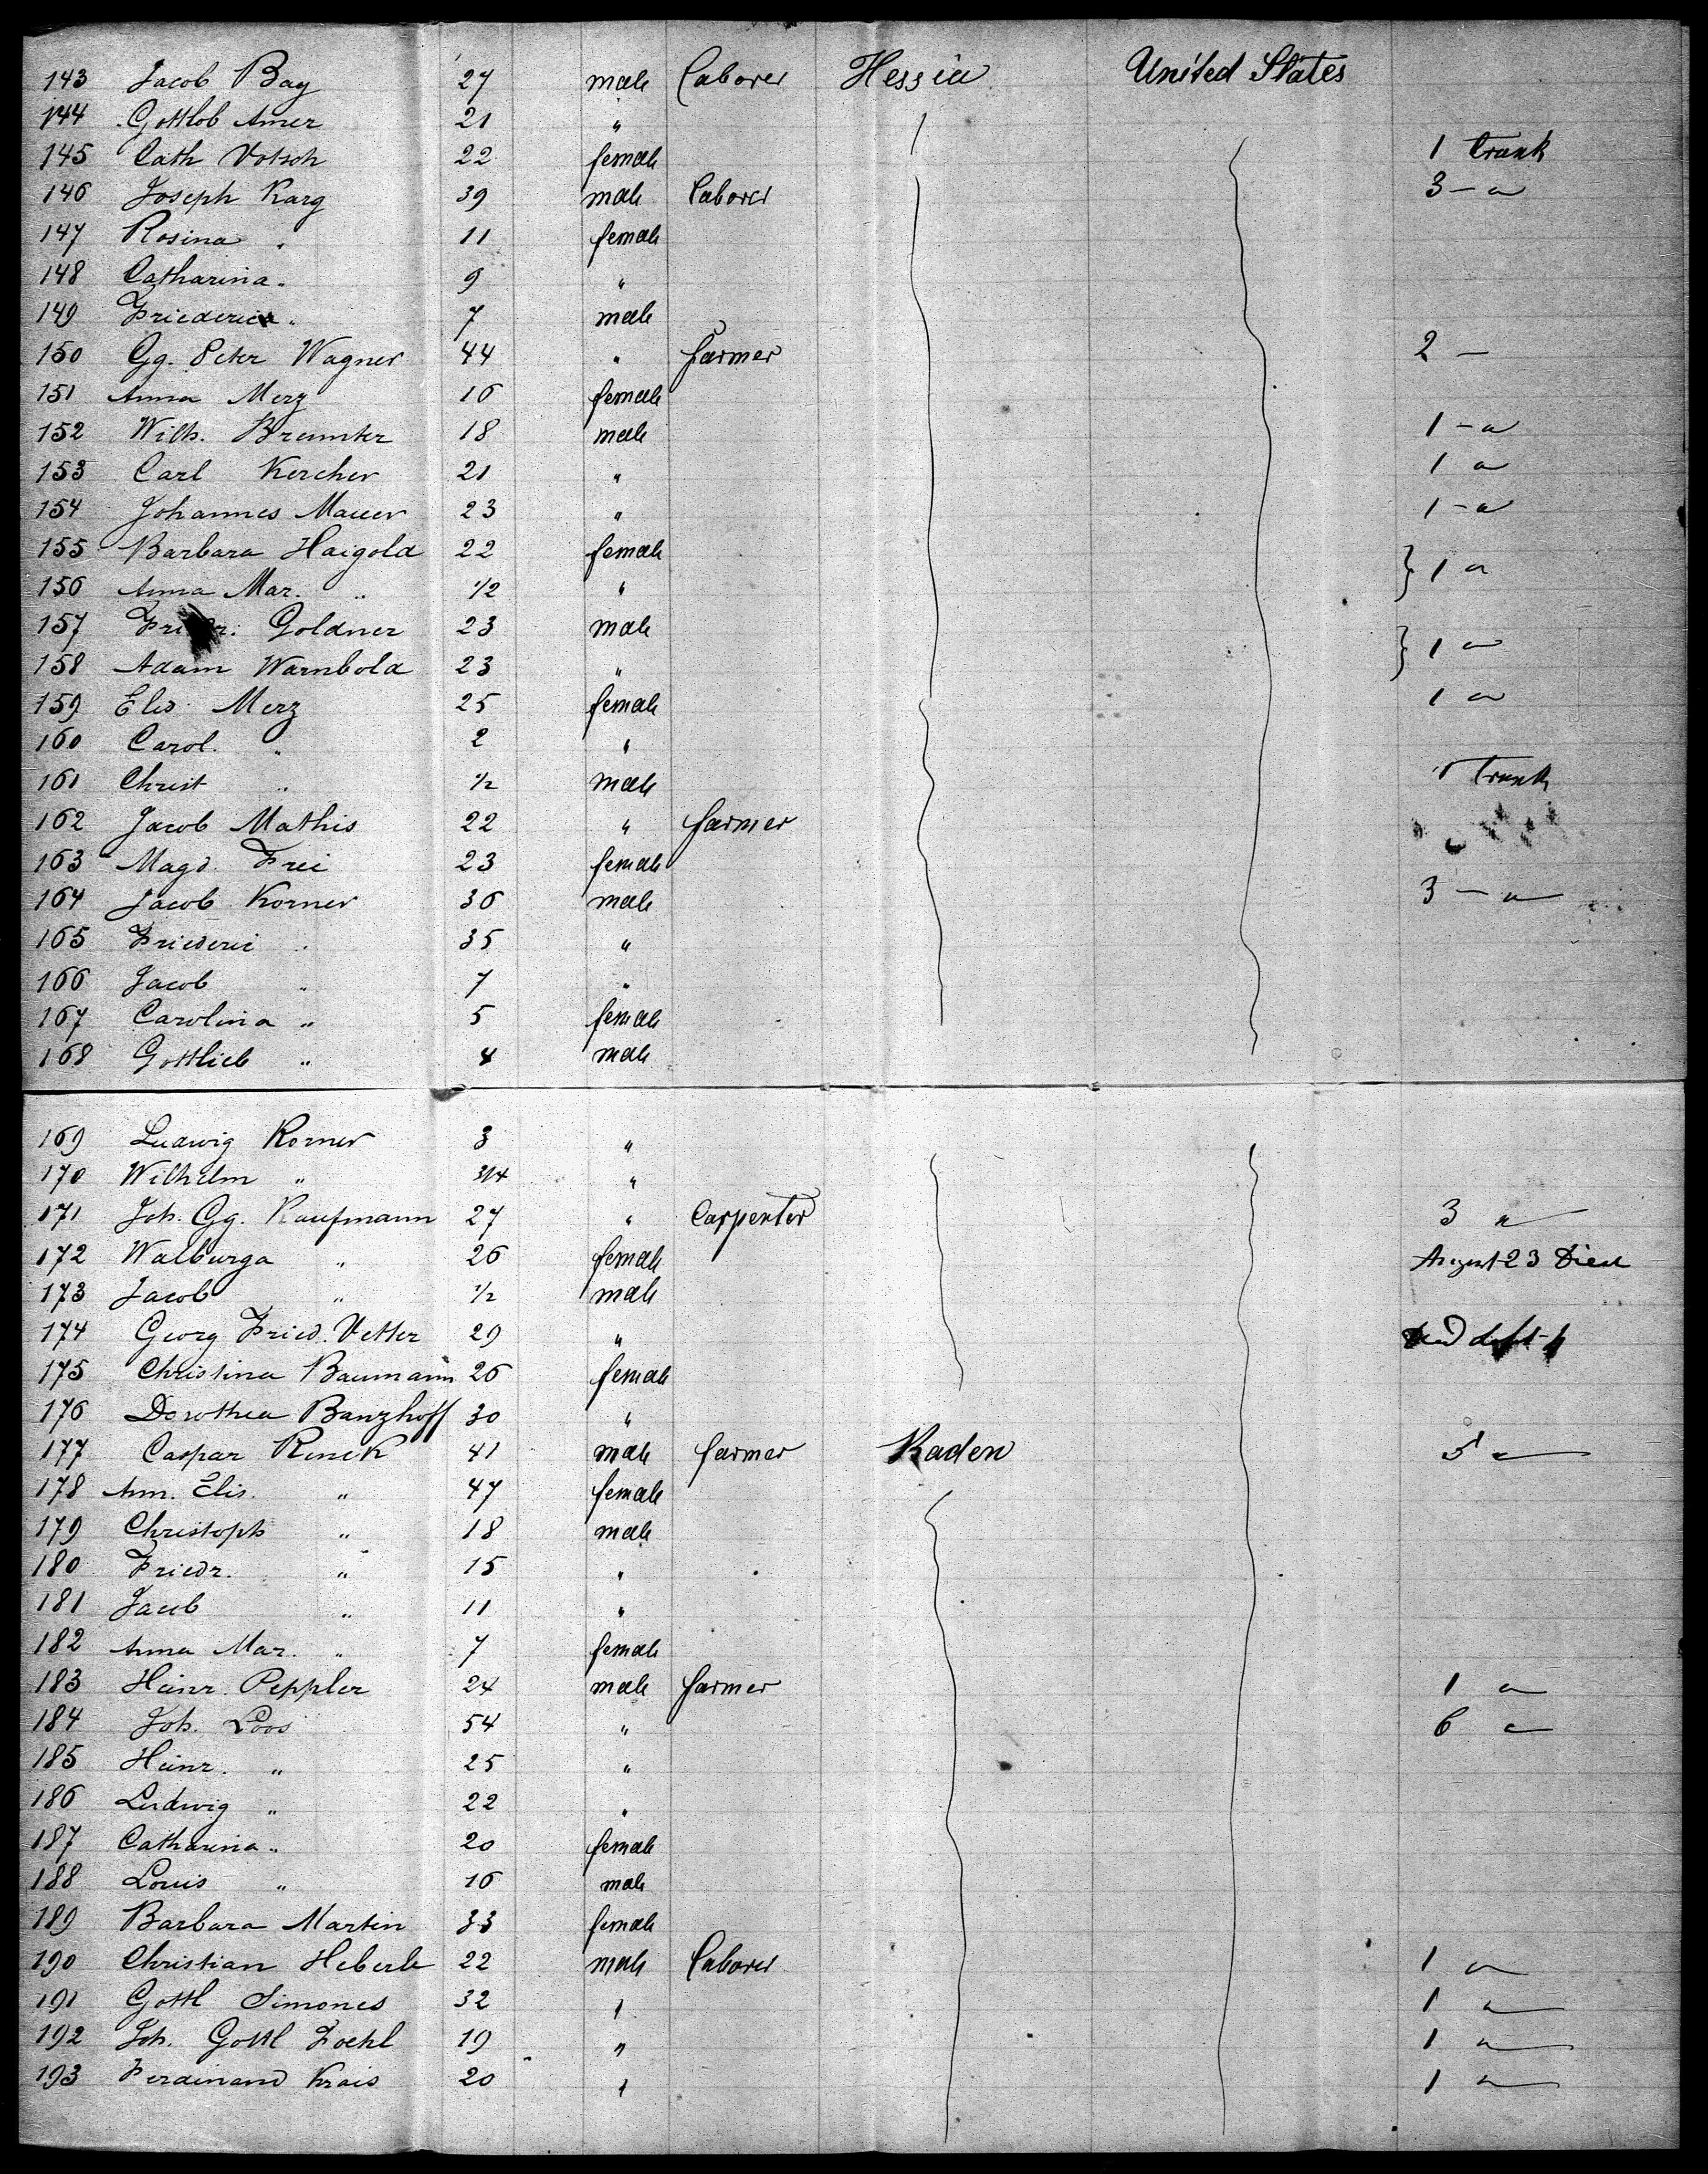 143 Jacob Bay 27 male Laborer Hessia United States
144 Gottlob Amer 21 "
145 Cath Votsch 22 female 1 Trunk
146 Joseph Karg 39 male Laborer 3 - "
147 Rosina " 11 female
148 Catharina " 9 "
149 Friederica " 7 male
150 Gg. Peter Wagner 44 " farmer 2 -
151 Anna Merz 16 female
152 Wilh. 18 male 1 - "
153 Carl Kercher 21 " 1 "
154 Johannes Mauer 23 " 1 - "
155 Barbara Haigold 22 female } 1 "
156 Anna Mar. " 1/2 "
157 Goldner 23 male } 1 "
158 Adam Warnbold 23 "
159 Elis. Merz 25 female 1 "
160 Carol. " 2 "
161 Christ " 1/2 male Trunk
162 Jacob Mathis 22 " farmer
163 Magd. Frei 23 female
164 Jacob Korner 36 male 3 - "
165 Friederi " 35 "
166 Jacob " 7 "
167 Carolina " 5 female
168 Gottlieb " 4 male
169 Ludwig Korner 3 "
170 Wilhelm " 3/4 "
171 Joh. Gg. Kaufmann 27 " Carpenter 3 "
172 Walburga " 26 female August 23 Died
173 Jacob " 1/2 male
174 Georg Fried. Vetter 29 "
175 Christina Baumann 26 female
176 Dorothea Banzhoff 30 "
177 Caspar Renck 41 male farmer Baden 5 "
178 Ann. Elis. " 47 female
179 Christoph " 18 male
180 Friedr. " 15 "
181 Jacob " 11 "
182 Anna Mar. " 7 female
183 Heinr. Peppler 24 male farmer 1 "
184 Joh. Loos 54 " 6 "
185 Heinr. " 25 "
186 Ludwig " 22 "
187 Catharina " 20 female
188 Louis " 16 male
189 Barbara Martin 33 female
190 Christian Heberle 22 male Laborer 1 "
191 Gottl Simones 32 " 1 "
192 Joh. Gottl Foehl 19 " 1 "
193 Ferdinand Krais 20 " 1 "